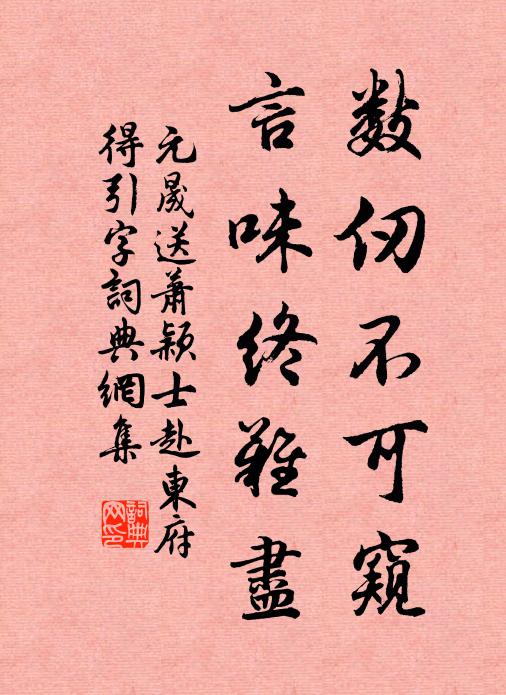 數仞不可窺
言味終難盡
元晟送蕭颖士赴東府
得引字詞典網集
詞典
网印